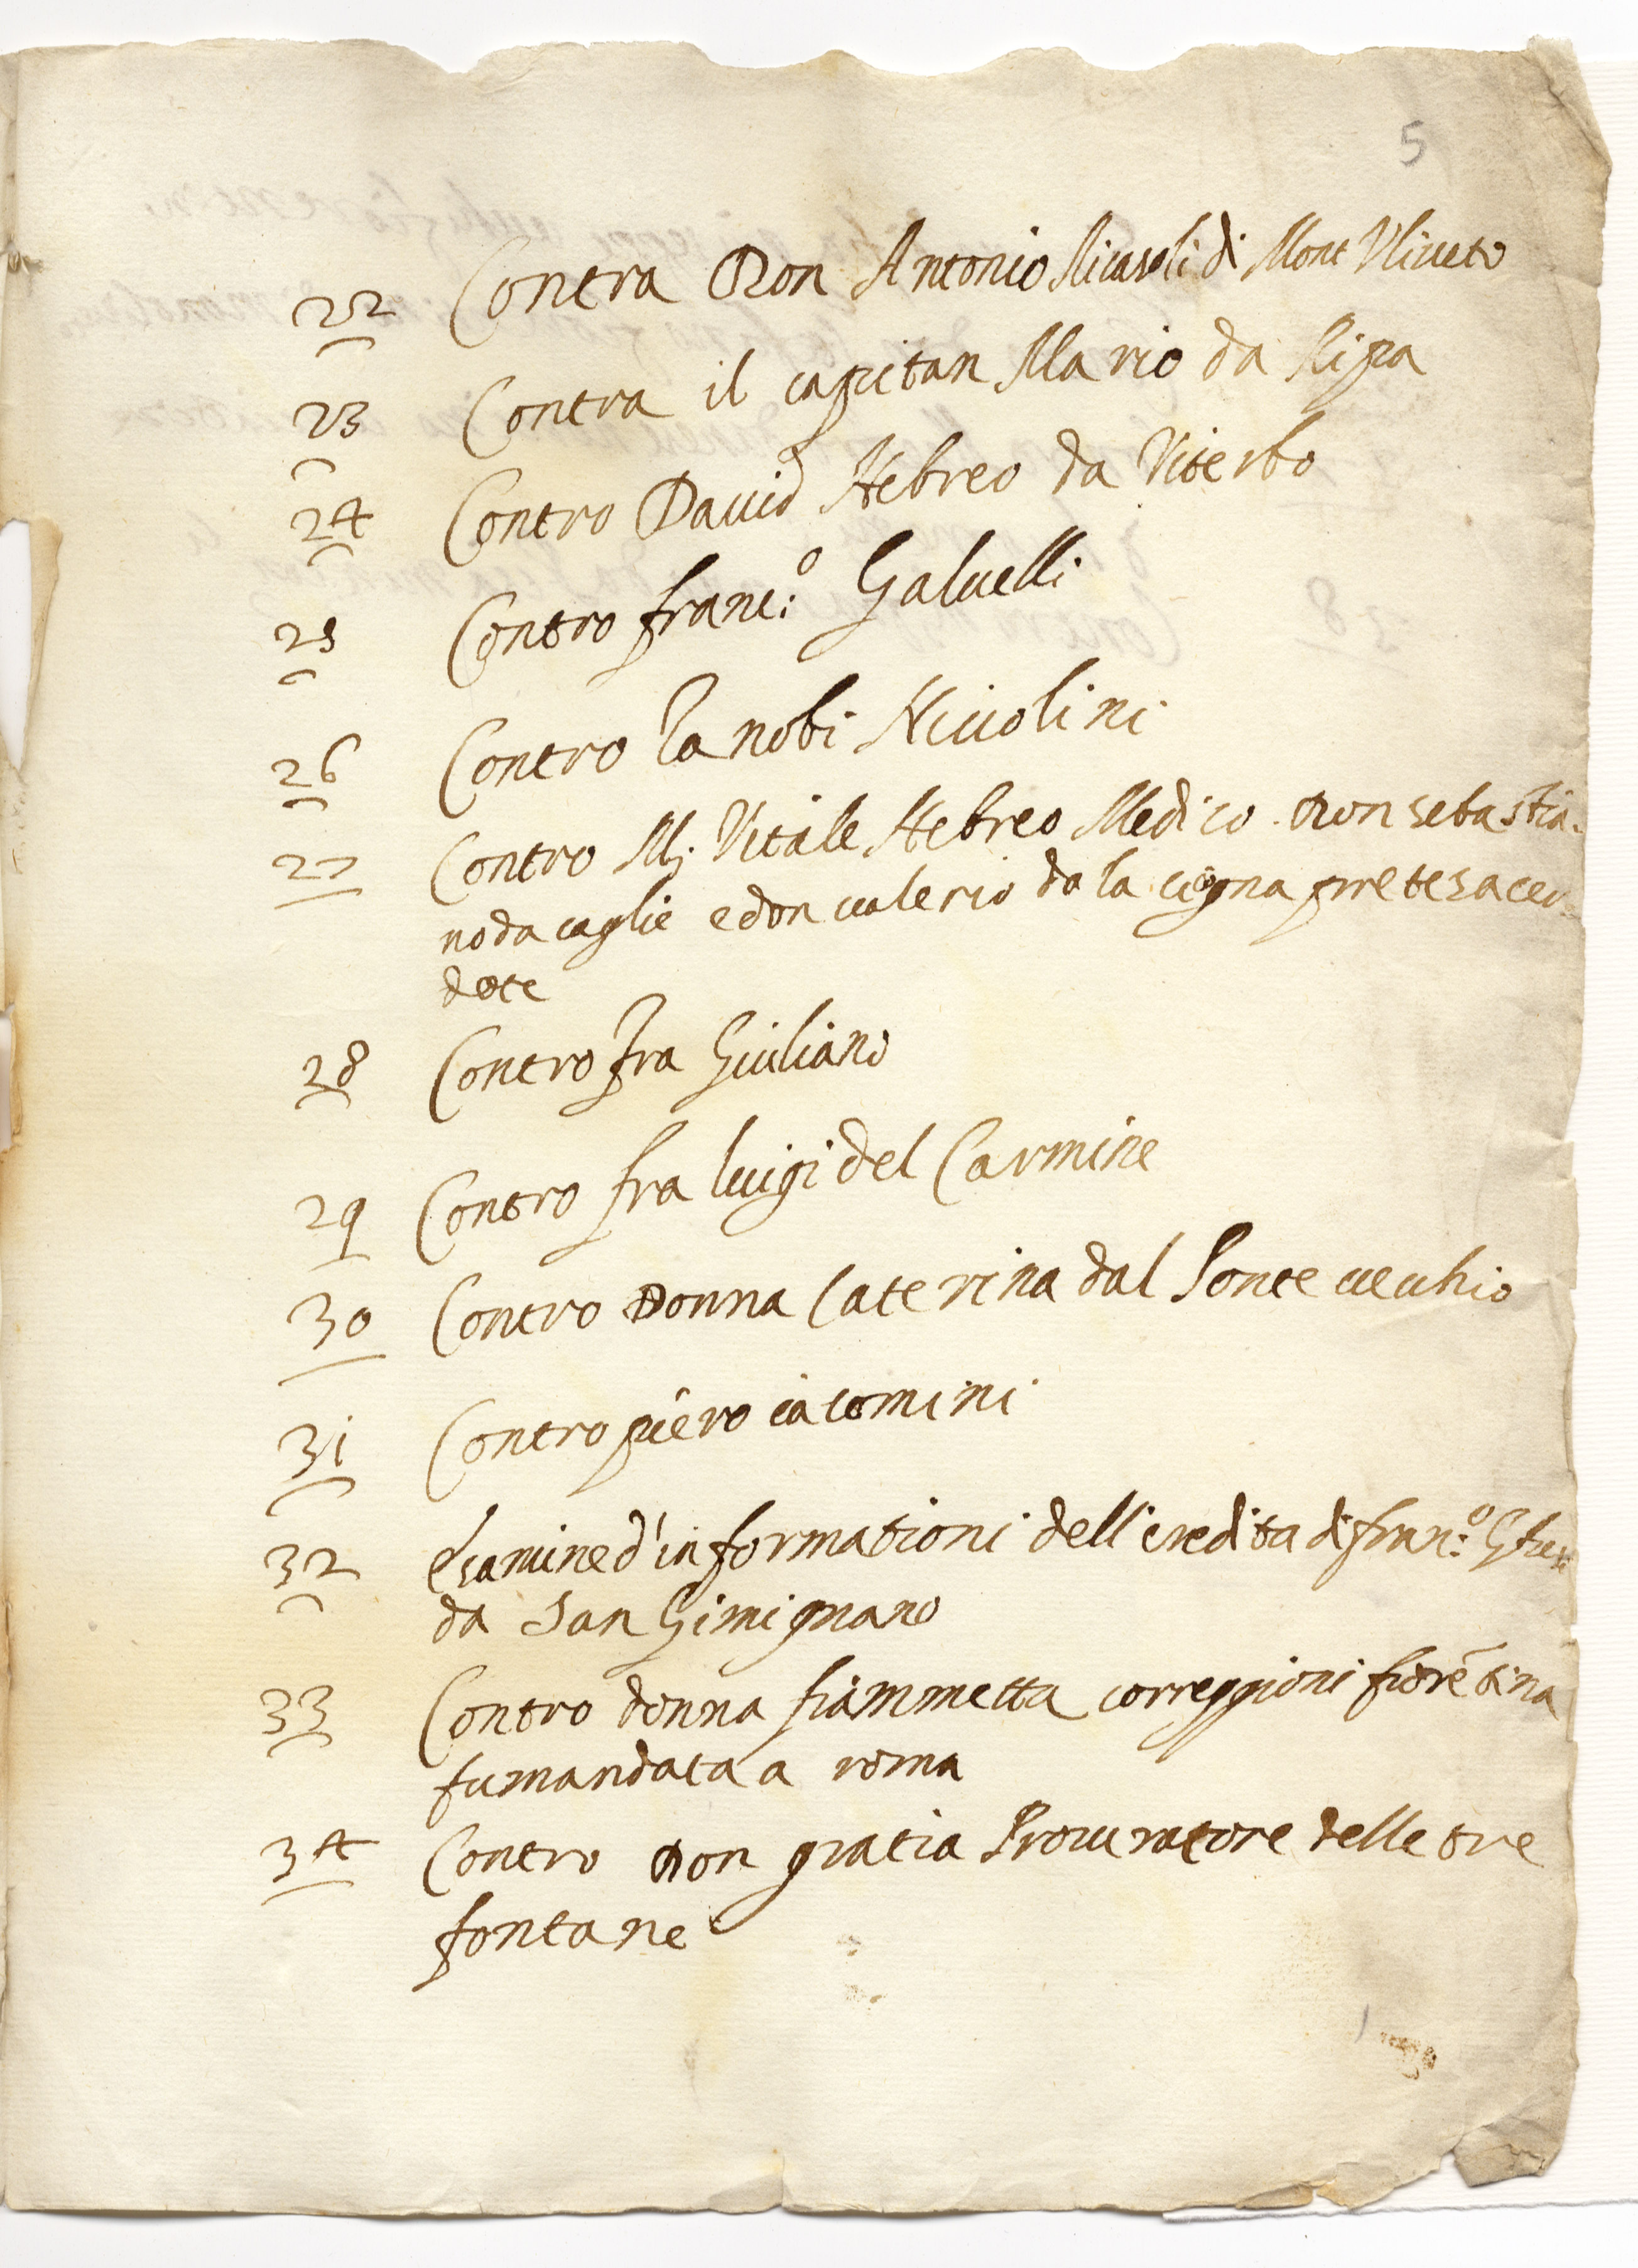 5
22 Contra Don Antonio Ricasoli di Mont Vliueto
23 Contra il capitan Mario da Ripa
24 Contro Dauid Hebreo da Viterbo
25 Contro franc:º Galuelli
26 Contro Zanobi Niccolini
27 Contro M. Vitale Hebreo Medico. Don sebastia-
no da caglie e don ualerio da la cigna prete sacer-
dote
28 Contro fra Giuliano
29 Contro fra luigi del Carmine
30 Contro Donna Caterina dal Ponte uecchio
31 Contro piero iacomini
32 Esamine d'informationi dell'eredita di fran:º
da San Gimignano
33 Contro donna fiammetta correggioni fiorẽtina
fu mandata a roma
34 Contro Don gratia Procuratore delle tre
fontane